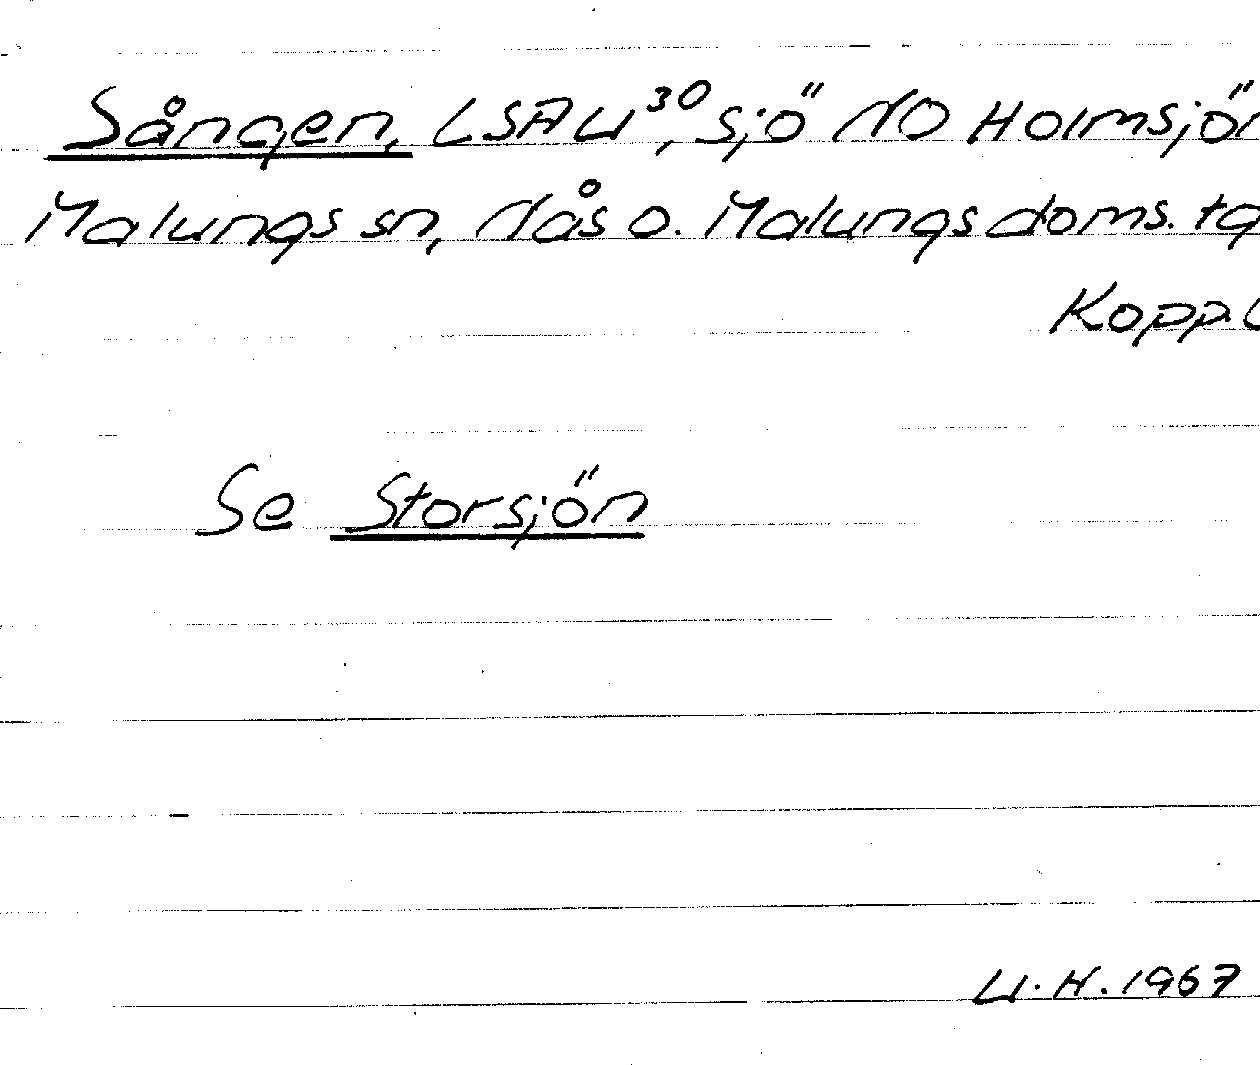 Sången, LSAU³⁰, sjö NO Holmsjön
Malungs sn, Nås o. Malungs doms. tg
Kopp. l
Se Storsjön
U.H. 1967